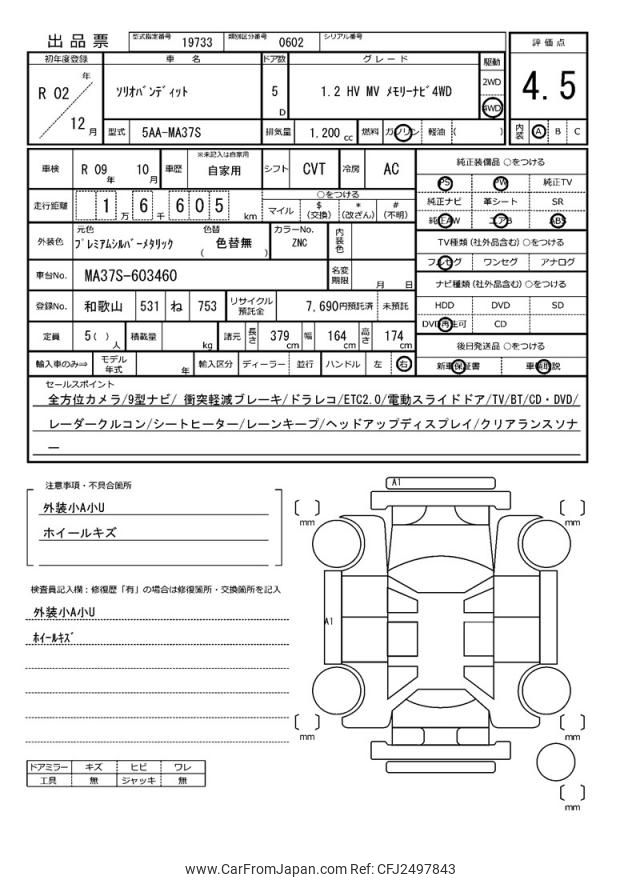 出品票 型式指定番号 19733 類別区分番号 0602 シリアル番号
初年度登録 車 名 ドア数 グレード 駆動 評価点
R 02 年 12 月 ソリオバンディット 5 D 1.2 HV MV メモリーナビ4WD 2WD 4WD 4.5
型式 5AA-MA37S 排気量 1,200 cc 燃料 ガソリン 軽油 ( ) 内装 A B C
車検 R 09 年 10 月 車歴 ※未記入は自家用 自家用 シフト CVT 冷房 AC
走行距離 1 万 6 千 6 0 5 km ○をつける マイル $ (交換) * (改ざん) # (不明)
外装色 元色 プレミアムシルバーメタリック 色替 ( 色替無 ) カラーNo. ZNC 内装色
車台No. MA37S-603460 名変期限 月 日
登録No. 和歌山 531 ね 753 リサイクル預託金 7,690円預託済 未預託
定員 5( ) 人 積載量 kg 諸元 長さ 379 cm 幅 164 cm 高さ 174 cm
輸入車のみ⇒ モデル年式 年 輸入区分 ディーラー 並行 ハンドル 左 右
純正装備品 ○をつける
PS PW 純正TV
純正ナビ 革シート SR
純正AW エアB ABS
TV種類 (社外品含む) ○をつける
フルセグ ワンセグ アナログ
ナビ種類 (社外品含む) ○をつける
HDD DVD SD
DVD再生可 CD
後日発送品 ○をつける
新車保証書 車輌取説
セールスポイント
全方位カメラ/9型ナビ/ 衝突軽減ブレーキ/ドラレコ/ETC2.0/電動スライドドア/TV/BT/CD・DVD/
レーダークルコン/シートヒーター/レーンキープ/ヘッドアップディスプレイ/クリアランスソナ
ー
注意事項・不具合箇所
外装小A小U
ホイールキズ
検査員記入欄：修復歴「有」の場合は修復箇所・交換箇所を記入
外装小A小U
ホイールキズ
ドアミラー キズ ヒビ ワレ
工具 無 ジャッキ 無
A1
mm
mm
A1
mm
mm
mm
www.CarFromJapan.com Ref: CFJ2497843